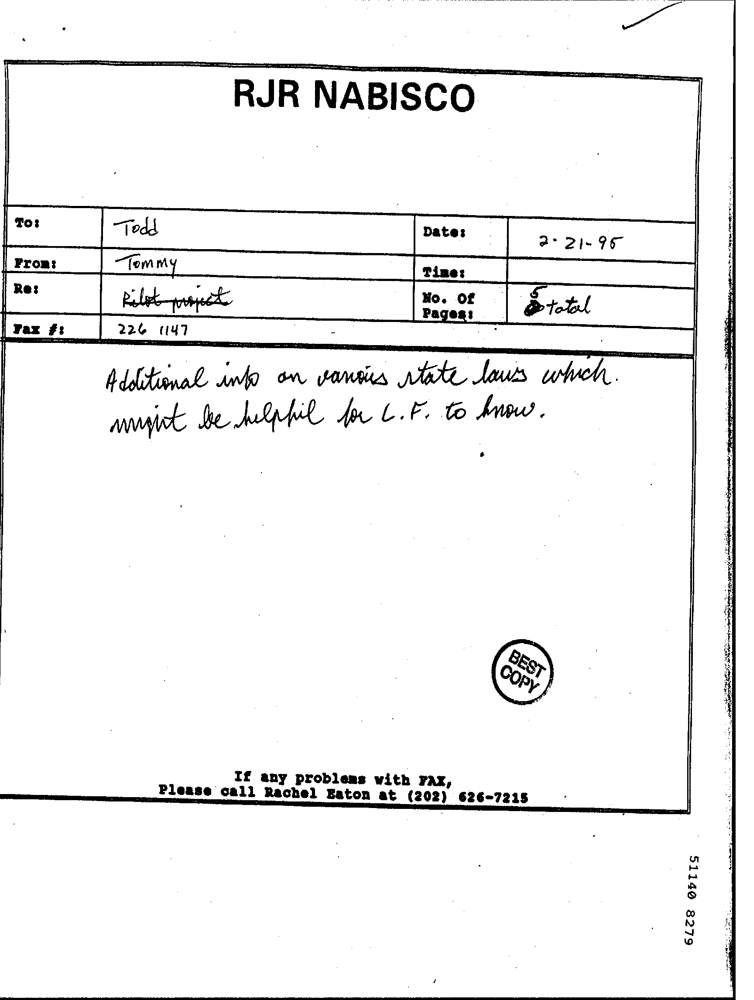 RJR NABISCO
To: Todd Date: 2-21-95
From: Tommy Time:
Re: Pilot project No. Of Pages: 5 total
Fax #: 226 1147
Additional info on various state laws which
might be helpful for L.F. to know.
BEST
COPY
If any problems with FAX,
Please call Rachel Eaton at (202) 626-7215
51140 8279